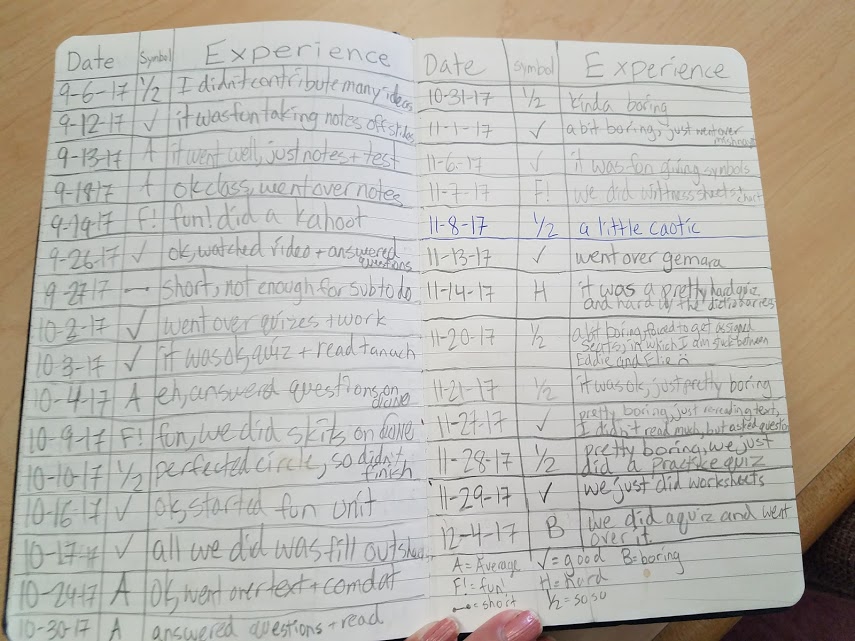 Date Symbol Experience
9-6-17 ½ I didn't contribute many ideas
9-12-17 ✓ it was fun taking notes off slides
9-13-17 A it went well, just notes + test
9-18-17 A ok class, went over notes
9-19-17 F! fun! did a kahoot
9-26-17 ✓ ok, watched video + answered
questions
9-27-17 short, not enough for sub to do
10-2-17 ✓ went over quizes + work
10-3-17 ✓ it was ok, quiz + read tanach
10-4-17 A eh, answered questions on
10-9-17 F! fun, we did skits on
10-10-17 ½ perfected circle, so didn't
finish
10-16-17 ✓ ok, started fun unit
10-17-17 ✓ all we did was fill out
10-24-17 A ok, went over text +
10-30-17 A answered questions + read
Date symbol Experience
10-31-17 ½ kinda boring
11-1-17 ✓ a bit boring, just went over
11-6-17 ✓ it was fun giving symbols
11-7-17 F! we did witness sheets + chart
11-8-17 ½ a little caotic
11-13-17 ✓ went over gemara
11-14-17 H it was a pretty hard quiz,
and hard w/ the dictionaries
11-20-17 ½ a bit boring, forced to get assigned
in which I am stuck between
Eddie and Elie
11-21-17 ½ it was ok, just pretty boring
11-27-17 ✓ pretty boring, just rereading text,
I didn't read much, but asked question
11-28-17 ½ pretty boring, we just
did a practice quiz
11-29-17 ✓ we just did worksheets
12-4-17 B we did a quiz and went
over it
A = Average ✓ = good B = boring
F! = fun! H = Hard
= short ½ = so so